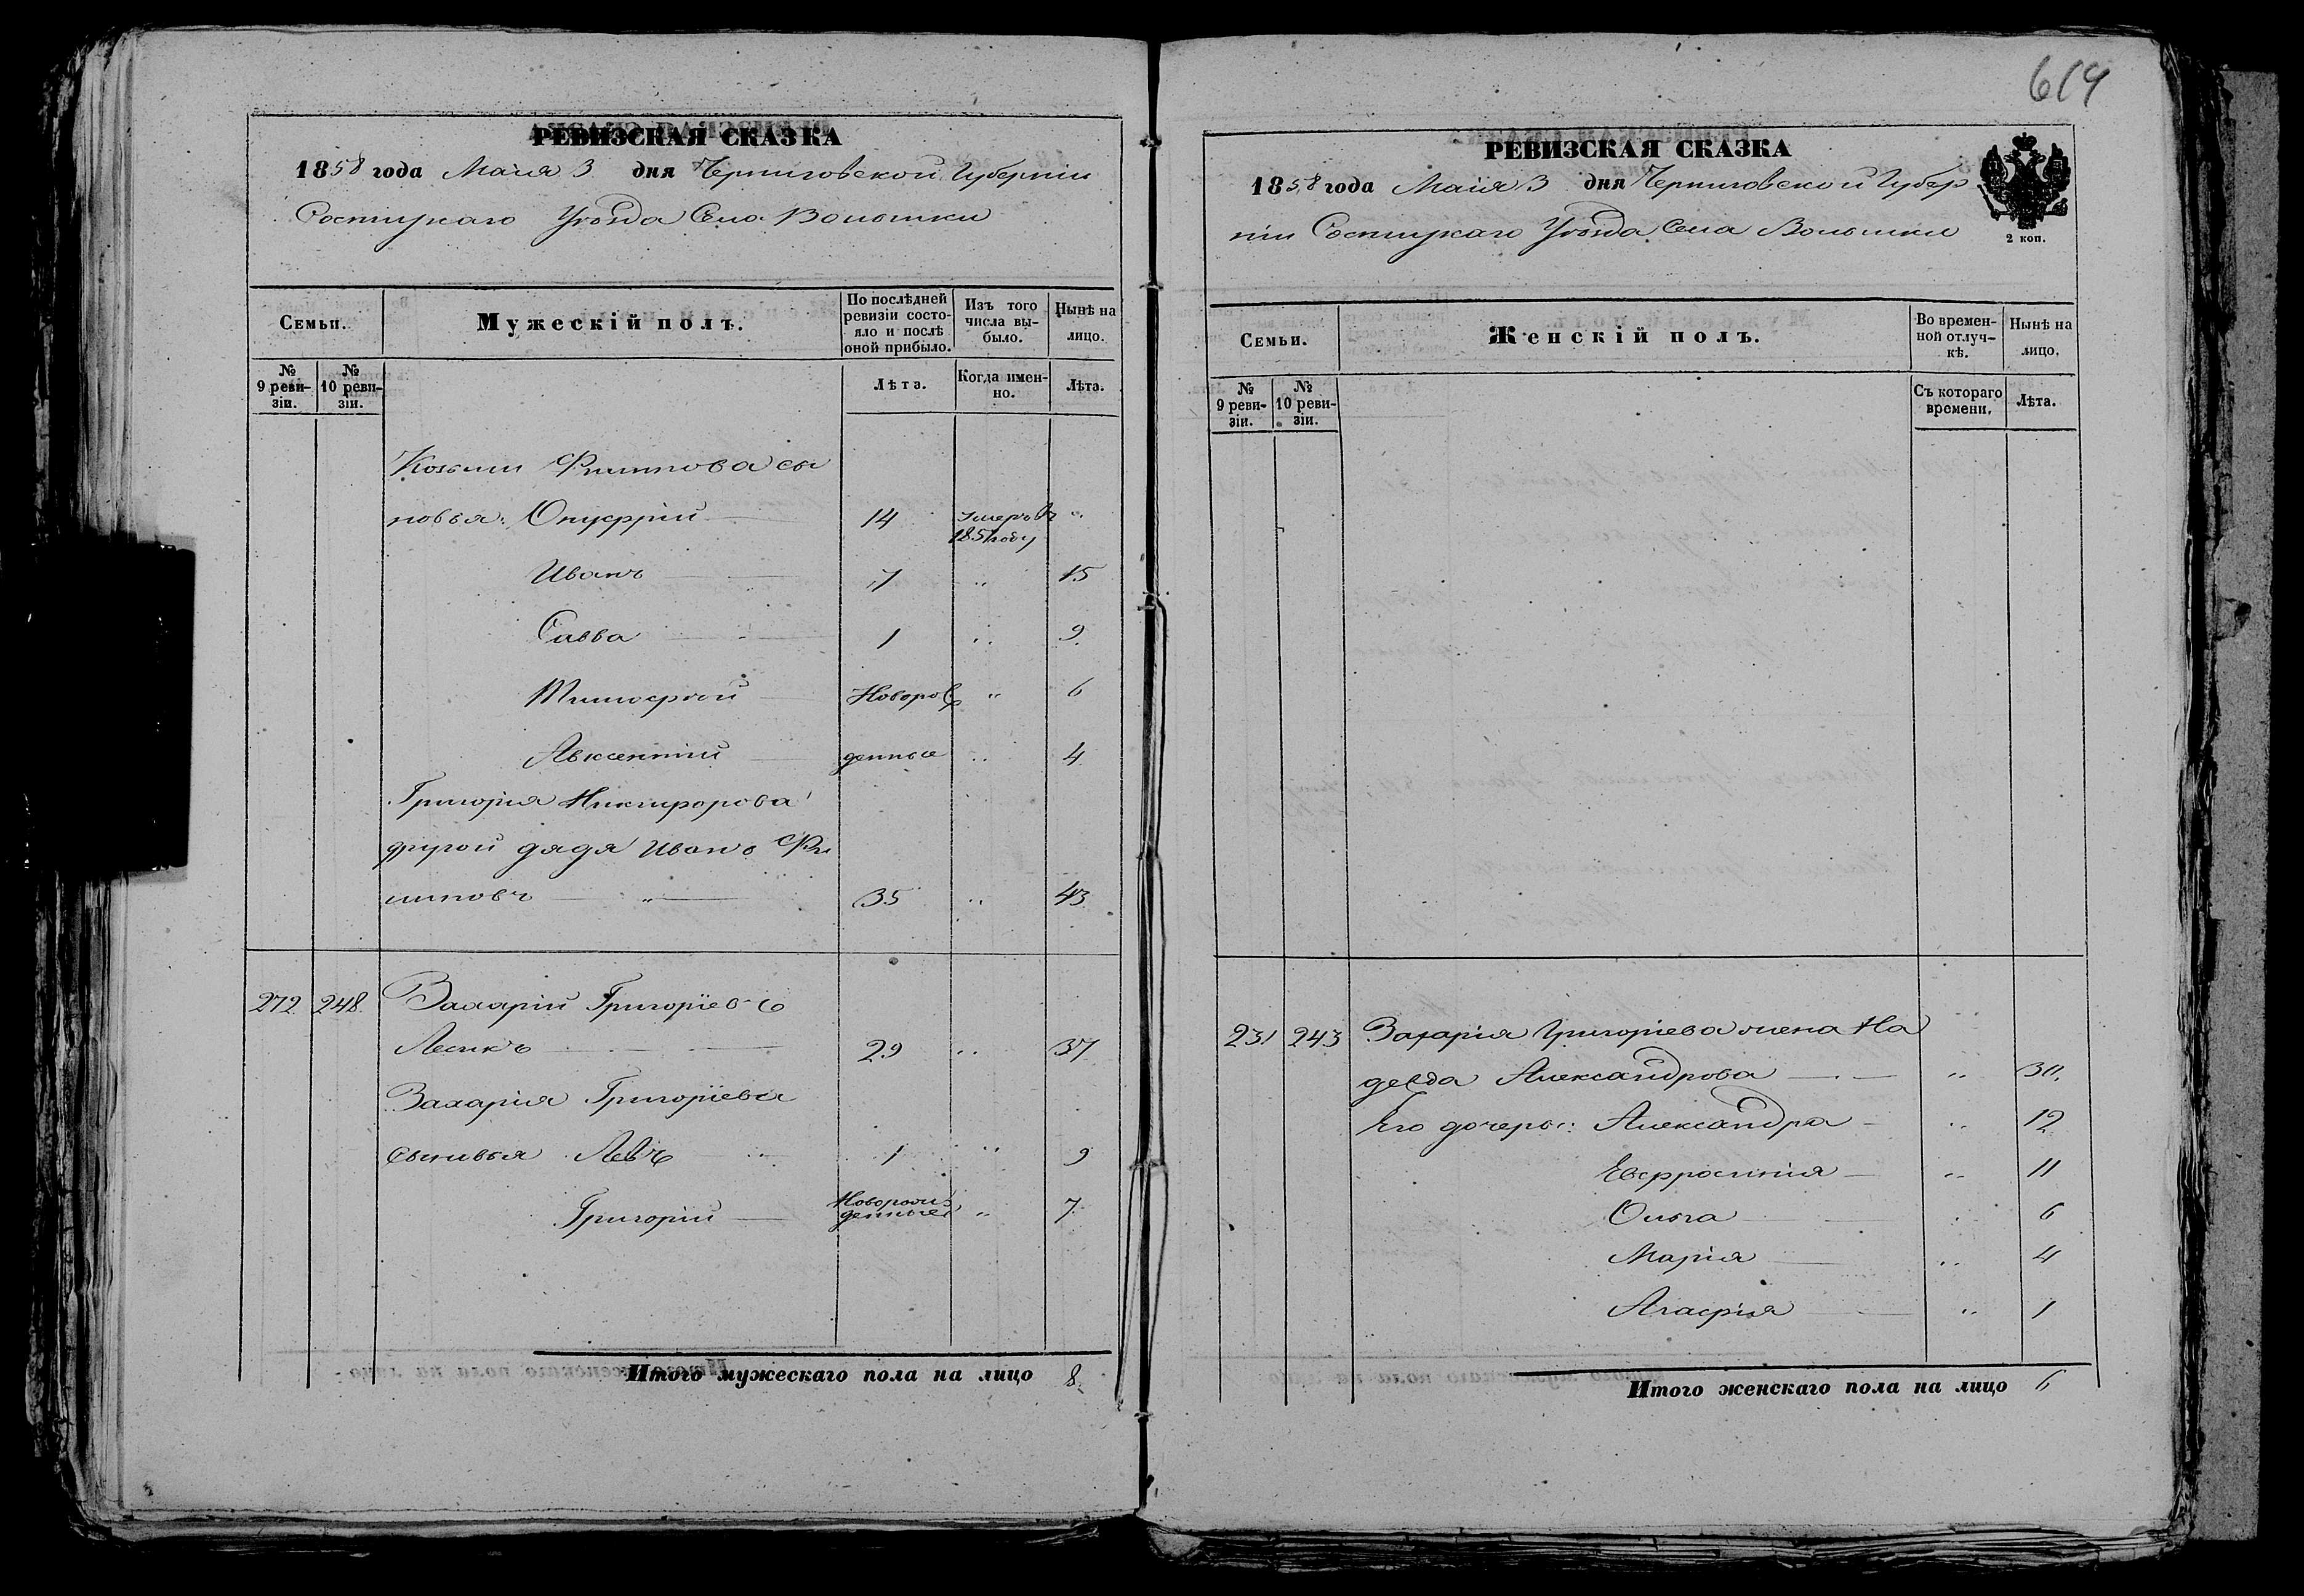 614
РЕВИЗСКАЯ СКАЗКА
1858 года Маія 3 дня Черниговской Губерніи
Сосницкаго Уѣзда Села Волынки
Семьи.
Мужескій полъ.
По послѣдней ревизіи состояло и послѣ оной прибыло.
Изъ того числа выбыло.
Нынѣ на лицо.
№ 9 ревизіи.
№ 10 ревизіи.
Лѣта.
Когда именно.
Лѣта.
Козьми Филипова сы
новья: Онуфрій 14 Умеръ въ 1851 году "
Иванъ 7 " 15
Савва 1 " 9
Тимофѣй Новорож " 6
Авксентій денные " 4
Григорія Никифорова
другой дядя Иванъ Фи
липовъ " 35 " 43
272 248 Захарій Григоріевъ
Лесикъ 29 " 37
Захарія Григоріева
сыновья Левъ 1 " 9
Григорій Новорожденные " 7
Итого мужескаго пола на лицо 8
РЕВИЗСКАЯ СКАЗКА
1858 года Маія 3 дня Черниговской Губер
ніи Сосницкаго Уѣзда Села Волынки
2 коп.
Семьи.
Женскій полъ.
Во временной отлучкѣ.
Нынѣ на лицо.
№ 9 ревизіи.
№ 10 ревизіи.
Съ котораго времени.
Лѣта.
231 243 Захарія Григоріева жена На
дежда Александрова " 30.
Его дочеры: Александра " 12
Евфросинія " 11
Ольга " 6
Марія " 4
Агафія " 1
Итого женскаго пола на лицо 6